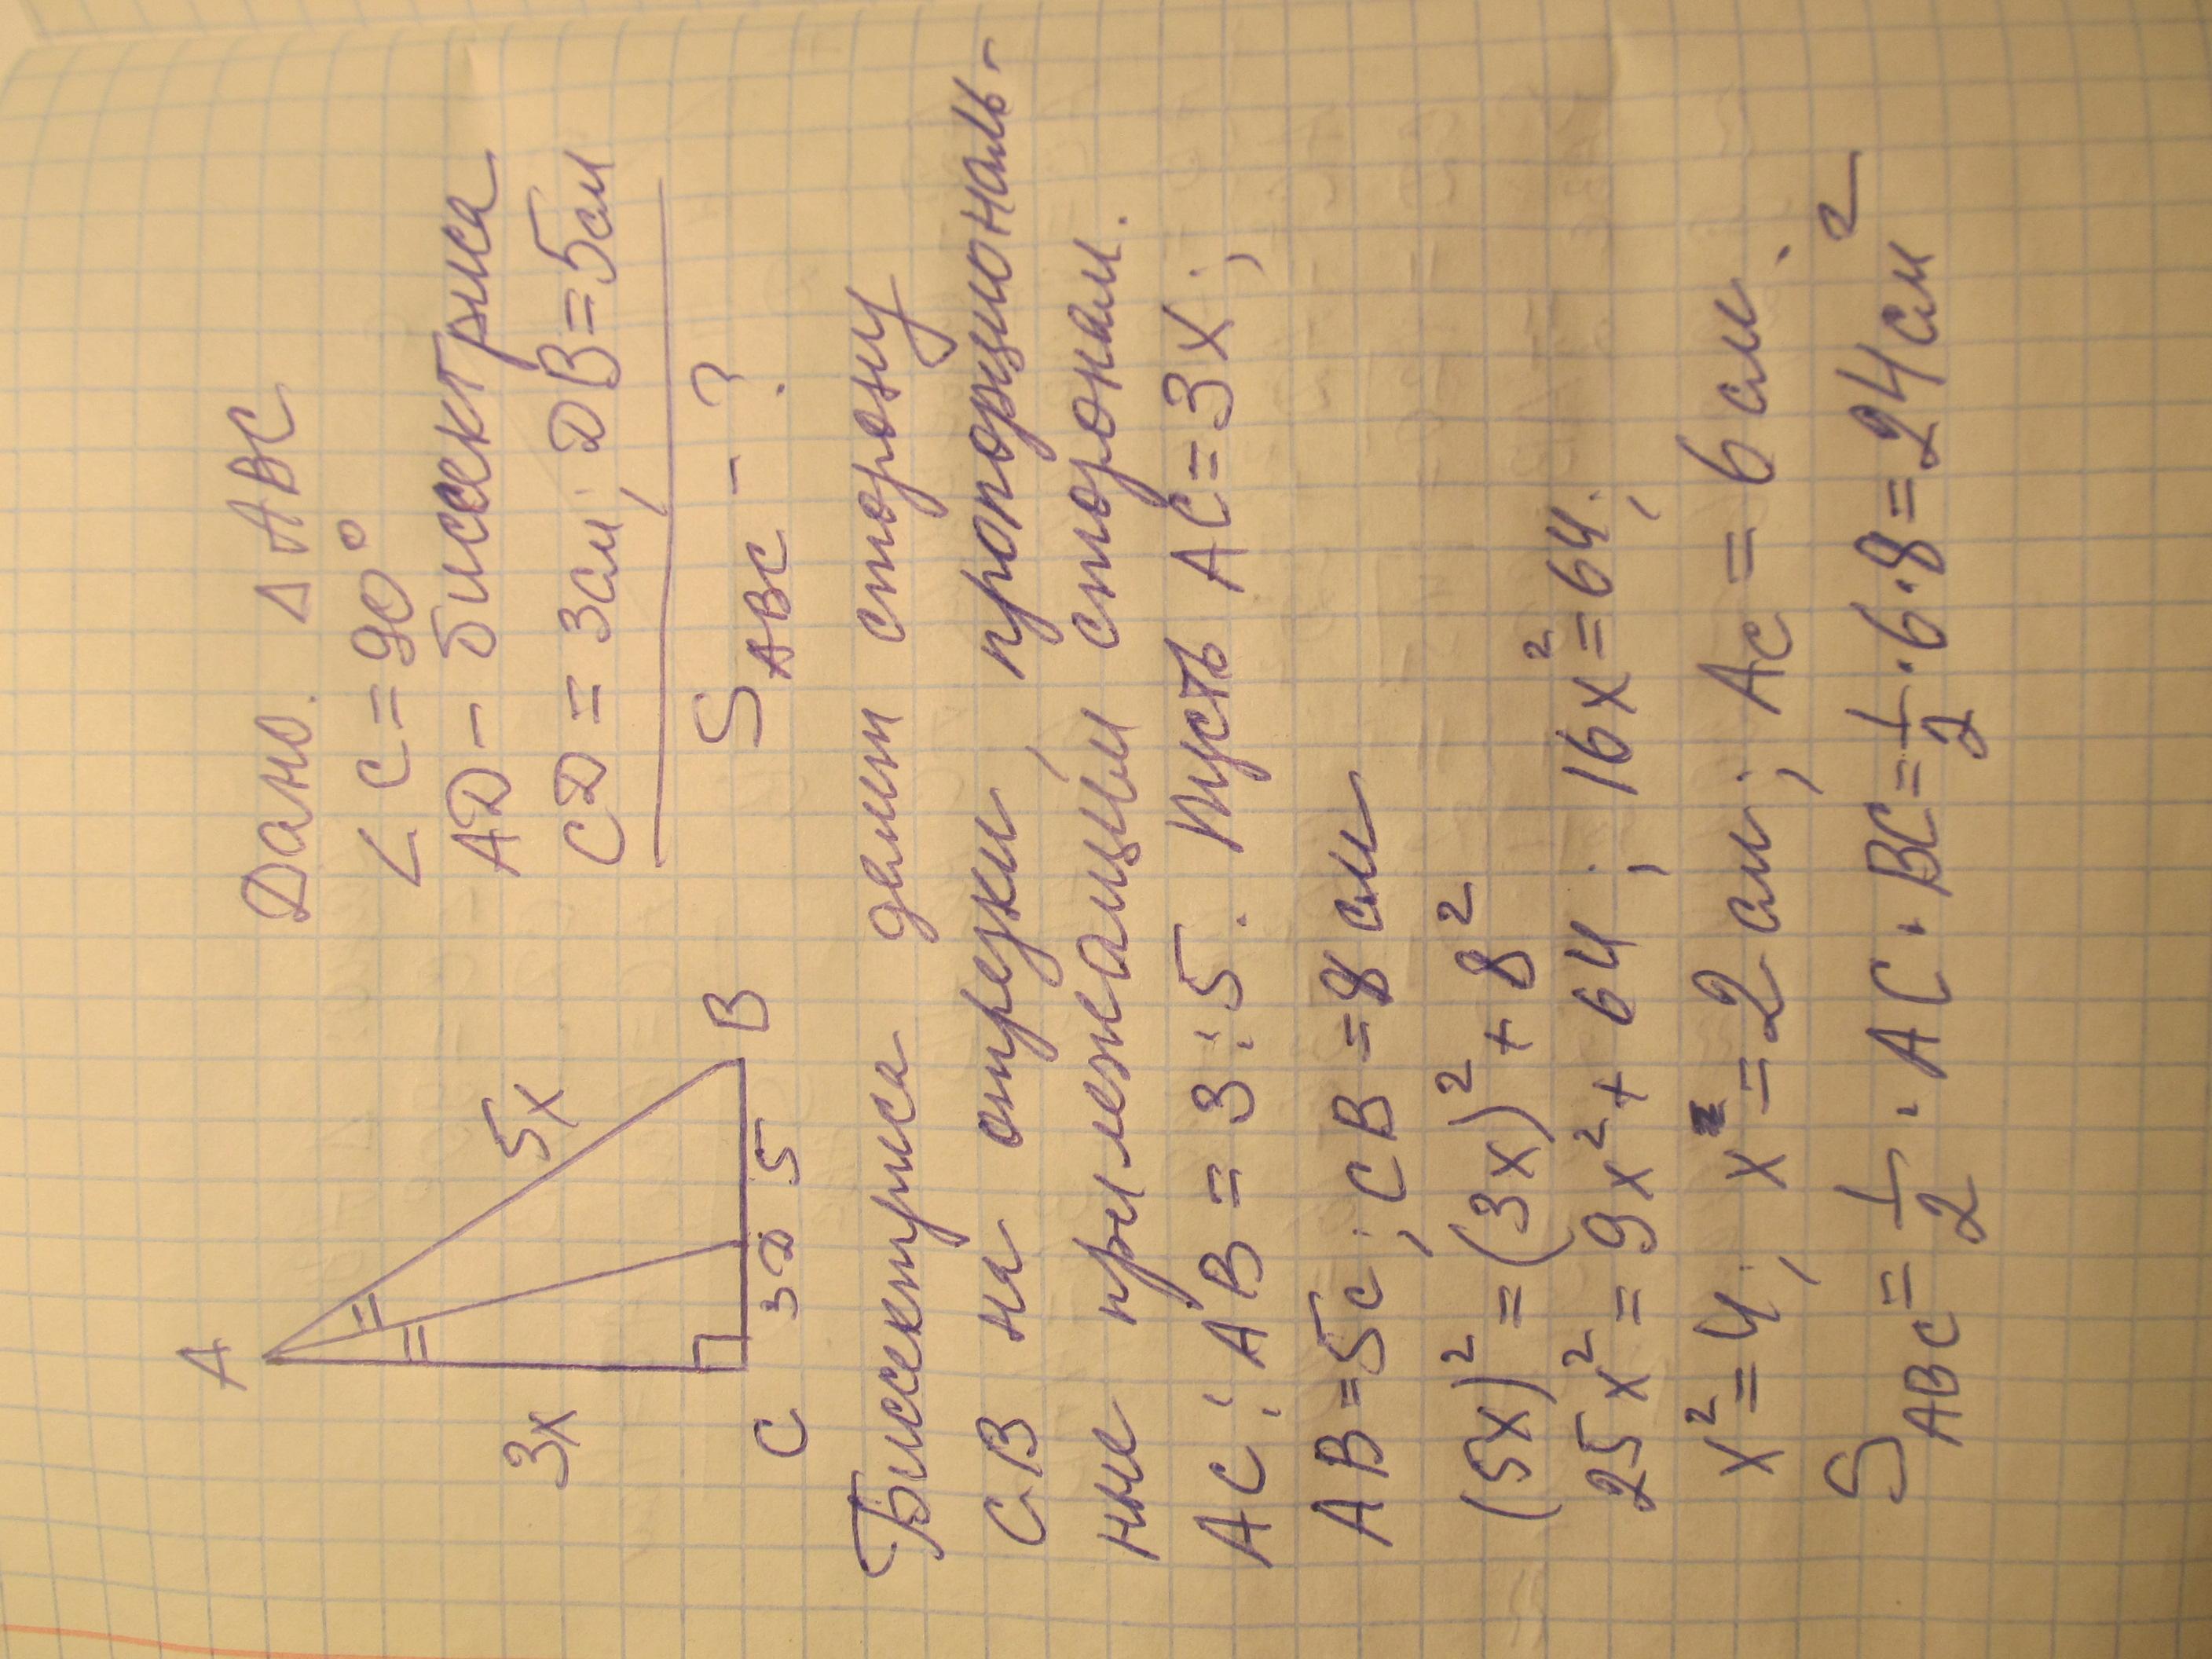 A
3x
5x
C
3
D
5
B
Дано. Δ ABC
∠ C = 90°
AD - биссектриса
CD = 3см; DB = 5см
S ABC - ?
Биссектриса делит сторону
CB на отрезки, пропорциональ-
ные прилежащим сторонам.
AC : AB = 3 : 5. Пусть AC = 3x;
AB = 5c; CB = 8 см
(5x)² = (3x)² + 8²
25x² = 9x² + 64; 16x² = 64;
x² = 4; x = 2 см; AC = 6 см.
S ABC = 1/2 · AC · BC = 1/2 · 6 · 8 = 24 см²